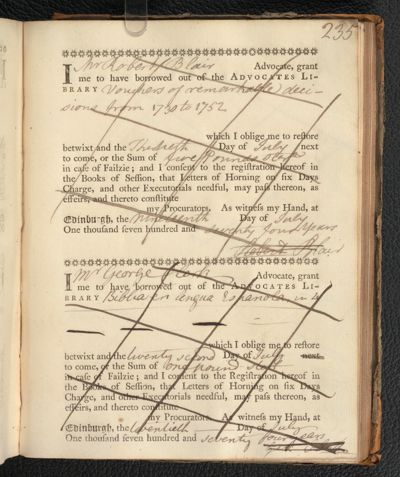 235
I Mr Robert Blair Advocate, grant
me to have borrowed out of the ADVOCATES LI-
BRARY Vouchers of remarkable deci-
sions from 1730 to 1752
which I oblige me to restore
betwixt and the Day of July next
to come, or the Sum of five Pounds
in case of Failzie; and I consent to the registration hereof in
the Books of Session, that Letters of Horning on six Days
Charge, and other Executorials needful, may pass thereon, as
effeirs, and thereto constitute
my Procurators. As witness my Hand, at
Edinburgh, the Nineteenth Day of July
One thousand seven hundred and seventy four years
Robert Blair
I Mr George Advocate, grant
me to have borrowed out of the ADVOCATES LI-
BRARY Biblia en Lengua Espanola in 4
which I oblige me to restore
betwixt and the twenty second Day of July next
to come, or the Sum of One pound
in case of Failzie; and I consent to the Registration hereof in
the Books of Session, that Letters of Horning on six Days
Charge, and other Executorials needful, may pass thereon, as
effeirs, and thereto constitute
my Procurators. As witness my Hand, at
Edinburgh, the twentieth Day of July
One thousand seven hundred and seventy four years